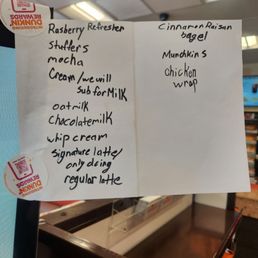 Rasberry Refresher
stuffers
mocha
Cream/we will
sub for Milk
oatmilk
Chocolatemilk
whip cream
signature latte/
only doing
regular latte
Cinnamon Raisan
bagel
Munchkins
chicken
wrap
DUNKIN'
REWARDS
DUNKIN'
REWARDS